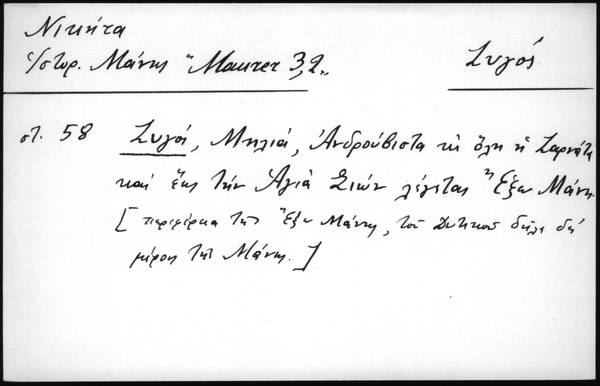 Νικήτα
ἱστορ. Μάνης "Maurer 3,2„
Ζυγός
στ. 58 Ζυγός, Μηλιά, Ἀνδρούβιστα κι ὅλη ἡ Ζαρνάτα
καί ἕως τήν Ἁγιά Σιών λέγεται Ἔξω Μάνη.
[περιφέρεια τῆς Ἔξω Μάνης, τοῦ Δυτικοῦ δηλαδή
μέρους τῆς Μάνης.]